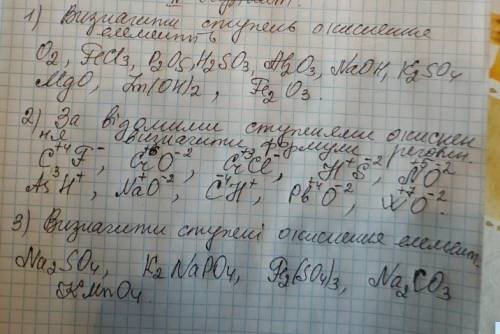 1) Визначити ступень окиснення
елементів
O₂, FeCl₃, P₂O₅, H₂SO₃, Al₂O₃, NaOH, K₂SO₄
MgO, Zn(OH)₂, Fe₂O₃.
2) За відомими ступенями окиснен
ня визначити формули речовин.
C⁺⁴F⁻, Cr⁺⁶O⁻², Cr⁺³Cl⁻, H⁺S⁻², N⁺⁵O⁻²
As⁻³H⁺, Na⁺O⁻², C⁻⁴H⁺, Pb⁺⁴O⁻², O⁻².
3) Визначити ступені окиснення елемент.
Na₂SO₄, K₂NaPO₄, Fe₂(SO₄)₃, Na₂CO₃
KMnO₄.